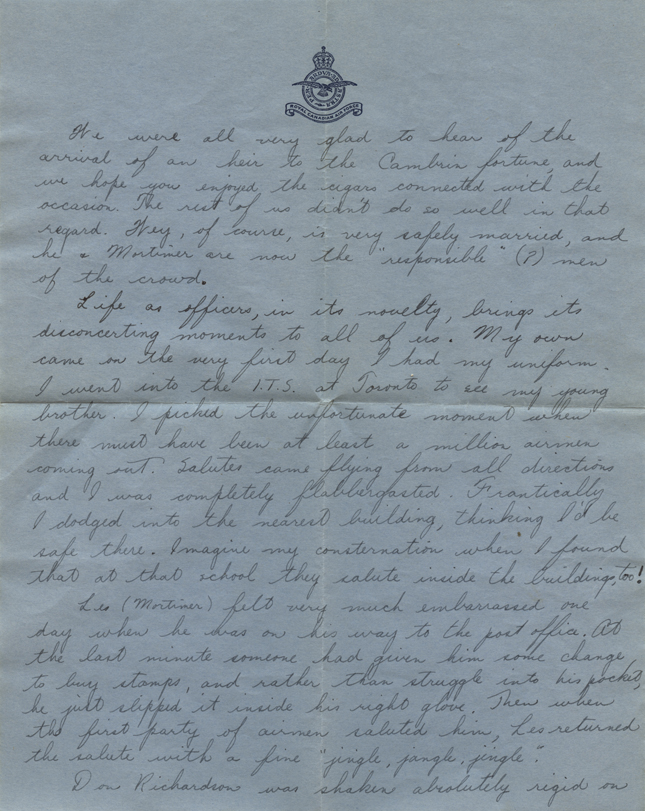 PER ARDUA AD ASTRA
ROYAL CANADIAN AIR FORCE
We were all very glad to hear of the
arrival of an heir to the Cambrin fortune, and
we hope you enjoyed the cigars connected with the
occasion. The rest of us didn't do so well in that
regard. Hey, of course, is very safely married, and
he & Mortimer are now the "responsible" (?) men
of the crowd.
Life as officers, in its novelty, brings its
disconcerting moments to all of us. My own
came on the very first day I had my uniform.
I went into the I.T.S. at Toronto to see my young
brother. I picked the unfortunate moment when
there must have been at least a million airmen
coming out. Salutes came flying from all directions
and I was completely flabbergasted. Frantically
I dodged into the nearest building, thinking I'd be
safe there. Imagine my consternation when I found
that at that school they salute inside the buildings, too!
Les (Mortimer) felt very much embarrassed one
day when he was on his way to the post office. At
the last minute someone had given him some change
to buy stamps, and rather than struggle into his pocket,
he just slipped it inside his right glove. Then when
the first party of airmen saluted him, Les returned
the salute with a fine "jingle, jangle, jingle".
Don Richardson was shaken absolutely rigid on